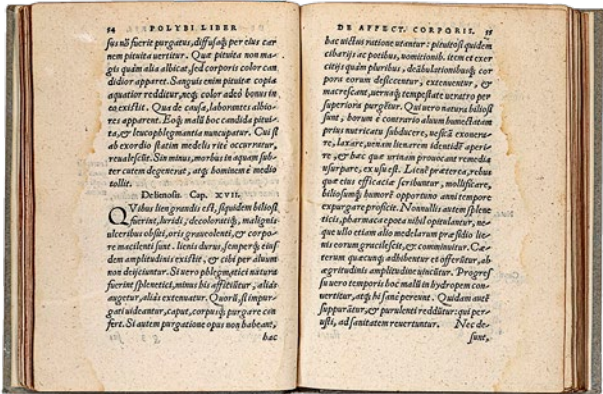 54 POLYBI LIBER
sus nō fuerit purgatus, diffusaq́; per eius car
nem pituita vertitur. Quæ pituita non ma-
gis quàm alia albicat, sed corporis color can
didior apparet. Sanguis enim pituitæ copia
aquatior redditur, neq; color adeò bonus in
ea existit. Qua de causa, laborantes albio-
res apparent. Eoq́; malū hoc candida pitui-
ta, & leucophlegmantia nuncupatur. Cui si
ab exordio statim medelis ritè occurratur,
reualescit. Sin minus, morbus in aquam sub-
ter cutem degenerat, atq; hominē è medio
tollit.
De lienosis. Cap. XVII.
QVibus lien grandis est, siquidem biliosi
fuerint, luridi, decoloratiq́;, malignis
ulceribus obsiti, oris graueolenti, & corpo-
re macilenti sunt. lienis durus, semperq́; eius
dem amplitudinis existit, & cibi per aluum
non deijciuntur. Si uero phlegmatici natura
fuerint splenetici, minus his afflictūtur, aliàs
augetur, aliàs extenuatur. Quorū, si impur-
gati uideantur, caput, corpusq́; purgare con
fert. Si autem purgatione opus non habeant,
hac
DE AFFECT. CORPORIS. 55
hac uictus ratione utantur: pituitosi quidem
cibarijs ac potibus, uomitionib. item et exer
citijs quàm pluribus, deābulationibusq́; cor
pora eorum desiccentur, extenuentur, &
macrescant, uernaq́; tempestate ueratro per
superiora purgētur. Qui uero natura biliosi
sunt, horum è contrario aluum humectatam
prius nutricatu subducere, uesicā exonera-
re, laxare, uenam lienarem identidē aperi-
re, & hæc quæ urinam prouocant remedia
usurpare, ex usu est. Lienē præterea, rebus
quæ eius efficaciæ scribuntur, mollificare,
biliosumq́; humorē opportuno anni tempore
expurgare proficit. Nonnullis autem splene
ticis, pharmaca epota nihil opitulantur, ne-
que ullo etiam alio medelarum præsidio lie-
nis eorum gracilescit, & comminuitur. Cæ-
terum quæcunq; adhibentur et offerūtur, ab
ægritudinis amplitudine uincūtur. Progres
su uero temporis hoc malū in hydropem con
uertitur, atq; hi sanè pereunt. Quidam autē
suppurātur, & purulenti reddūtur: qui per-
usti, ad sanitatem reuertuntur. Nec de-
sunt,